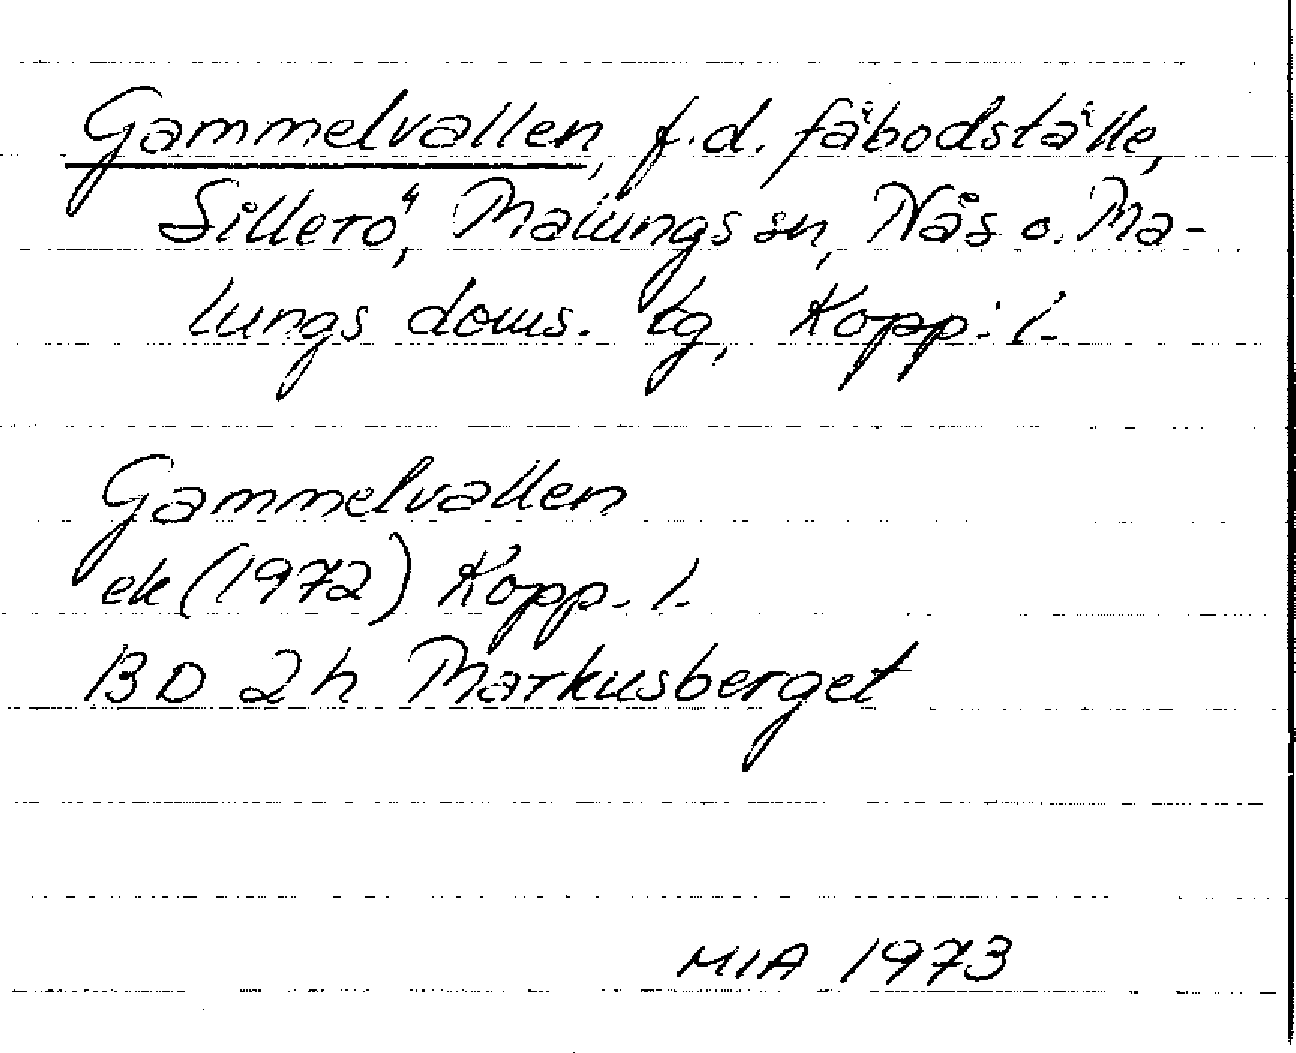 Gammelvallen, f.d. fäbodställe,
Sillerö, Malungs sn, Nås o. Ma-
lungs doms. tg, Kopp. l.
Gammelvallen
ek (1972) Kopp. l.
BD 2h Markusberget
MIA 1973